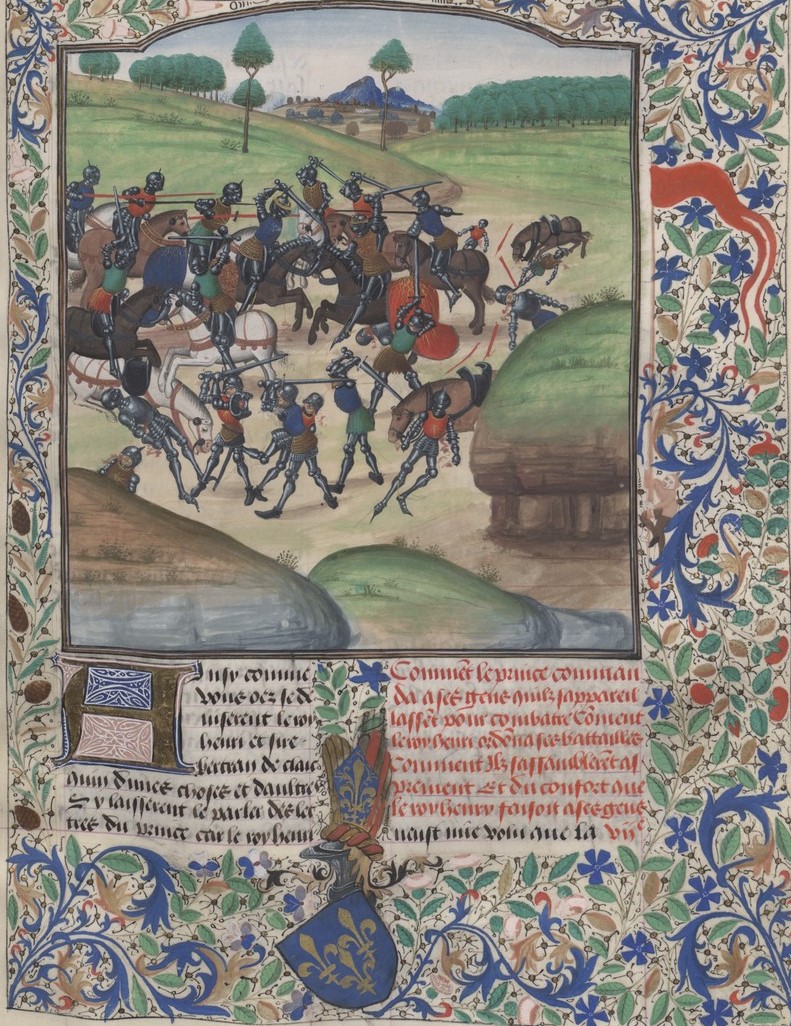 Ainsy comme
vous oez se de
uiserent le roy
henri et sire
bertran de claic
quin dunes choses et daultres
Et y laisserent le parler des let
tres du prince car le roy henri
Commēt le prince comman
da a ses gens quilz sappareil
lassēt pour combatre Cōment
le roy henri ordōna ses battailles
Comment Ilz sassamblerēt as
prement Et du confort que
le roy henry faisoit a ses gens
neust mie volu que la vijᵉ